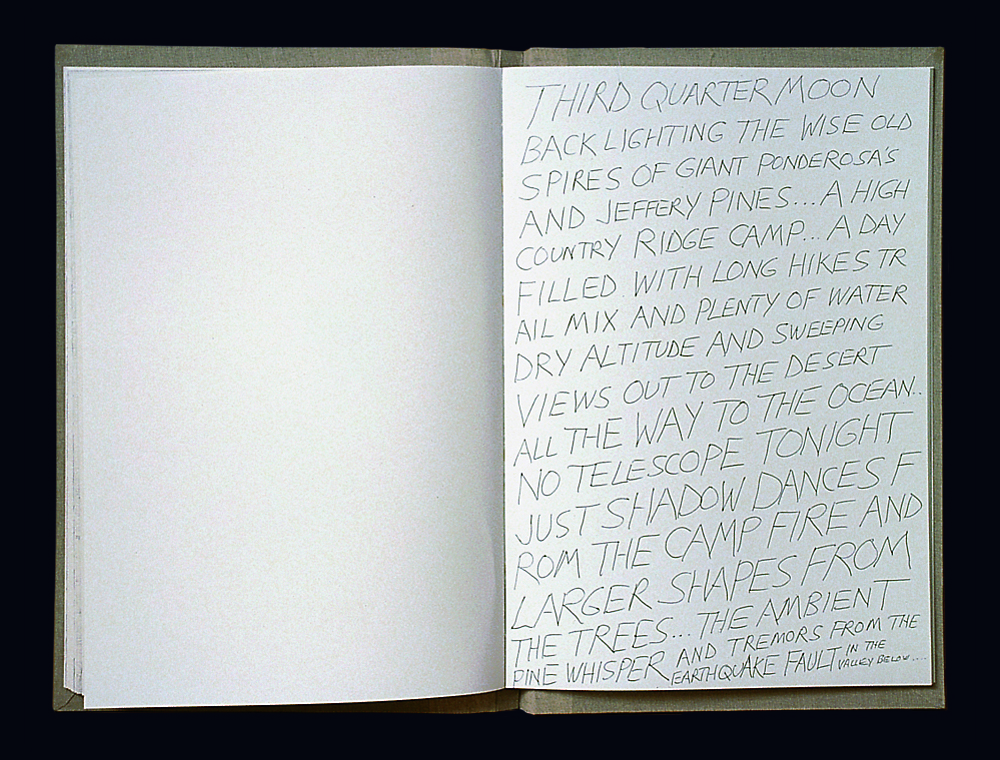 THIRD QUARTER MOON
BACK LIGHTING THE WISE OLD
SPIRES OF GIANT PONDEROSA'S
AND JEFFERY PINES... A HIGH
COUNTRY RIDGE CAMP... A DAY
FILLED WITH LONG HIKES TR
AIL MIX AND PLENTY OF WATER
DRY ALTITUDE AND SWEEPING
VIEWS OUT TO THE DESERT
ALL THE WAY TO THE OCEAN..
NO TELESCOPE TONIGHT
JUST SHADOW DANCES F
ROM THE CAMP FIRE AND
LARGER SHAPES FROM
THE TREES... THE AMBIENT
PINE WHISPER AND TREMORS FROM THE
EARTHQUAKE FAULT IN THE
VALLEY BELOW....